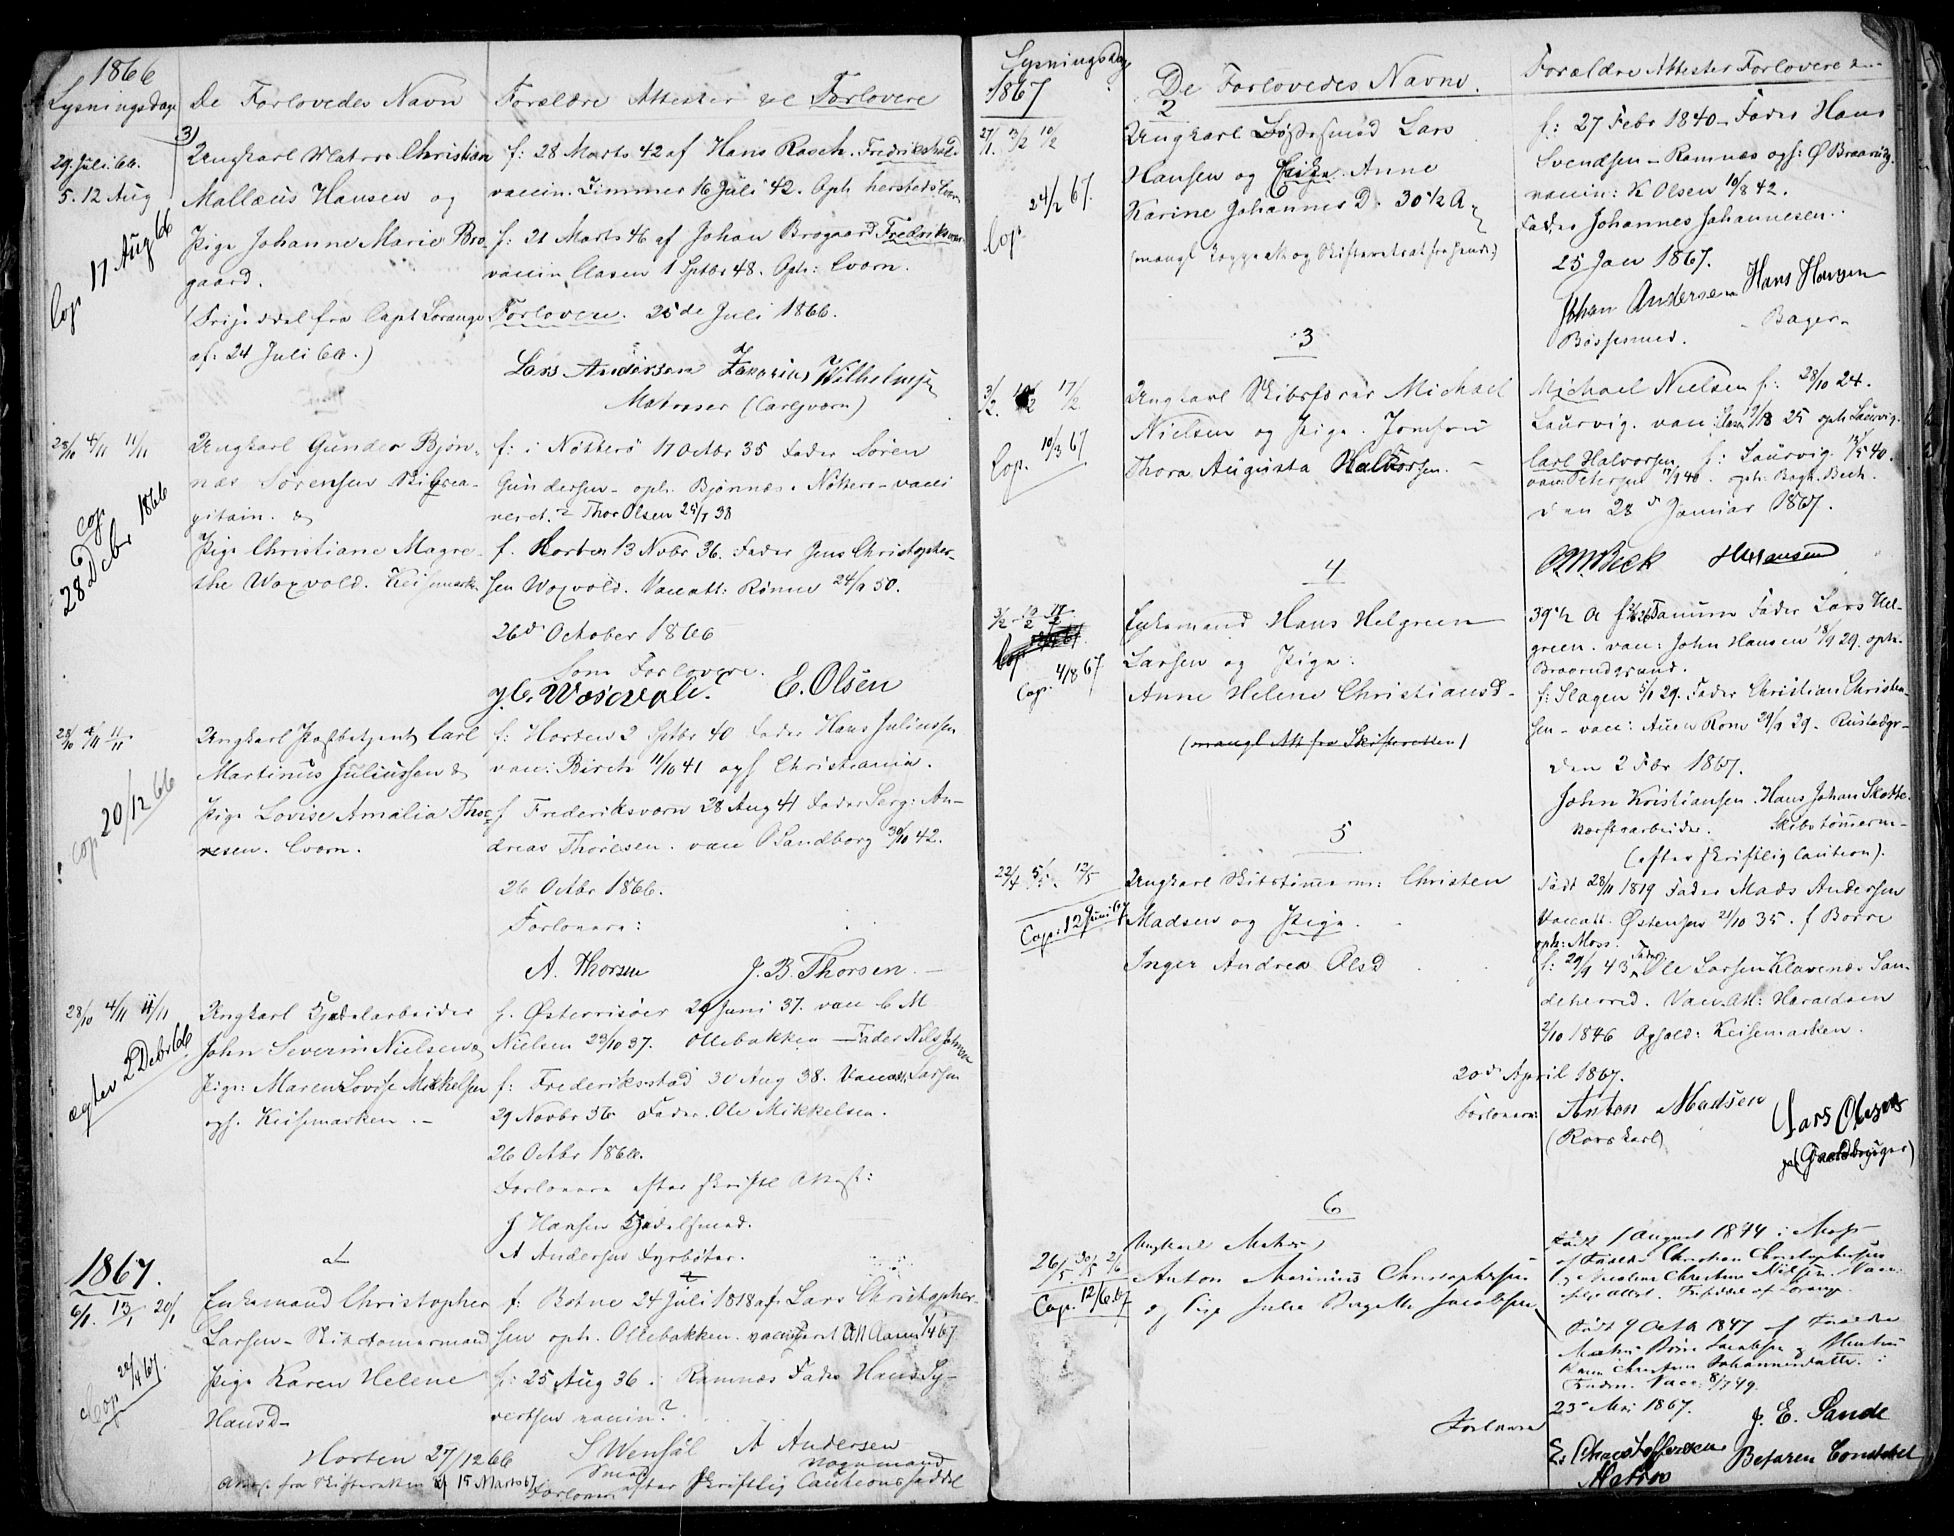 1866
Lysningsdage
De Forlovedes Navn
Forældre Attester ve Forlovere
3)
29 Juli 66.
5. 12 Aug
Cop 17 Aug 66
Ungkarl Matros Christian
Mallæus Hansen og
Pige Johanne Marie Bro-
gaard.
(Friseddel fra Capt Lorange
af: 24 Juli 66.)
f: 28 Marts 42 af Hans Rasch. Fredrikshald
vaccin. Zimmer 16 Juli 42. Oph hersteds
f: 21 Marts 46 af Johan Brogaard Fredriksværn
vaccin Clasen 1 Sptbr 48. Oph: Cværn.
Forlovere. 25de Juli 1866.
Lars Anderssen Zakarias Wilhelmsen
Matroser (Carljværn)
28/10 4/11 11/11
cop
28 Decbr 1866
Ungkarl Gunder Bjøn-
næs Sørensen Skibsca-
pitain. &
Pige Christiane Magre-
the Woxvold. Keisemark.
f: i Nötterö 17 Octbr 35 Fader Sören
Gundersen - oph. Bjönnæs. Nötterö - vacci
neret. Thor Olsen 25/7 38
f. Horten 13 Novbr 36. Fader Jens Christopher-
sen Woxvold. Vacc att: Rönne 24/9 50.
26de October 1866
Som Forlovere.
J.C. Woxvold. E. Olsen
28/10 4/11 11/11
cop 20/12 66
Ungkarl Postbetjent Carl
Martinus Juliussen &
Pige Lovise Amalia Tho-
resen. Cværn.
f: Horten 2 Sptbr 40 Fader Hans Juliussen
vacc: Birch 11/10 41 oph Christiania.
f Frederiksværn 28 Aug 41 Fader Serg: An-
dreas Thoresen. vacc O Sandborg 30/10 42.
26 Octbr 1866.
Forlovere:
A. Thorsen J. B. Thorsen. -
28/10 4/11 11/11
ægtev 2 Decbr 66
Ungkarl Fjedelarbeider
John Severin Nielsen &
Pige: Maren Lovise Mikkelsen
oph. Keisemarken. -
f. Østerrisöer 29 Juni 37. vacc C M
Nielsen 23/10 37. Ollebakken - Fader Nils Johnsen
f: Frederiksstad 30 Aug 38. Vacc att. Larsen
29 Novbr 36 Fader. Ole Mikkelsen.
26 Octbr 1866.
Forlovere efter skriftl Attest:
J Hansen Fjedelsmed.
A Andersen Fyrböter.
1867.
6/1. 13/1 20/1
Cop 22/4 67.
Enkemand Christopher
Larsen - Skibstømermand
Pige Karen Helene
Hansd-
f: Botne 24 Juli 1818 af Lars Christopher-
sen oph. Ollebakken. vaccineret Att Aasen 1/4 67.
f: 25 Aug 36. Ramnæs Fader Hans Sy-
vertsen vaccin?
Horten 27/12 66
S Wensål A Andersen
Smed Vognmand
Attest fra Skifteretten af 15 Marts 67
Forlovere efter skriftlig Cautionsseddel
Lysningsdag
1867
De Forlovedes Navne.
Forældre Attester Forlovere
2
27/1. 3/2 10/2
Cop 24/2 67.
Ungkarl Bøssesmed Lars
Hansen og Pige Anne
Karine Johannes D. 30 1/2 A
(mangl Koppeatt og Skifteretsatt fra hende)
f: 27 Febr 1840 - Fader Hans
Svendsen - Ramnæs oph: Ø Braarud.
vaccin: K Olsen 10/8 42.
Fader Johannes Johannesen.
25 Jan 1867.
Johan Andersen Hans Hansen
Bøssesmed. Bager
3
3/2. 10/2 17/2
Cop. 10/3 67
Ungkarl Skibsförer Michael
Nielsen og Pige. Jomfru
Thora Augusta Halvorsen. -
Michael Nielsen f: 28/10 24.
Laurvig. vacc: 9/8 25 oph Laurvig.
Carl Halvorsen f: Laurvig 13/5 40.
vacc: Petersen 17/9 40. oph: Bagh. Beck.
den 28de Januar 1867.
O M Beck H Hansen
4
3/2 10/2 17/2
Cop. 4/8 67
Enkemand Hans Helgreen
Larsen og Pige:
Anne Helene Christiansd-
(mangl Att fra Skifteretten)
39 1/2 A f. Sanum Fader Lars Hel-
green. vacc: John Hansen 18/9 29. oph-
Braarudgrund.
f: Slagen 5/1 29. Fader Christian Christen-
sen - vacc: Auen Rone 29/9 29 - Rustadgr-
den 2 Febr 1867.
John Kristiansen. Hans Johan Skotte
Værftsarbeider. Skibstömerm-
(efter skriftlig Caution).
5
22/4 5/5 12/5
Cop: 12 Juni 67
Ungkarl Skibstömerm: Christen
Madsen og Pige.
Inger Andrea Olsd
Født 28/11 1819 Fader Mads Andersen
Vacc att. Østensen 21/10 35. f Borre
oph: Moss.
f: 29/9 43 Fader Ole Larsen Klavenæs San-
deherred. Vacc. Att: Haraldsen
2/10 1846 Ophold: Keisemarken.
20de April 1867.
Forlovere: Anton Madsen Lars Olesen
(Rorskarl) (Gaardbruger)
6
26/5. 30/5 2/6
Cop. 12/6 67
Ungkarl Matros
Anton Marinius Christophersen
og Pige Julie Bergitte Jacobsen
Født 1 August 1844 i Moss
af Forældre Christian Christophersen
og Maline Christine Nilsen. Vacc:
Født 9 Octb 1847 af Forældre
Karen Christine Johannesdatter.
Vacc: 8/7 49.
23de Mai 1867.
Forlovere
J. E. Sande
E. Christoffersen Befaren Constabel
Matros